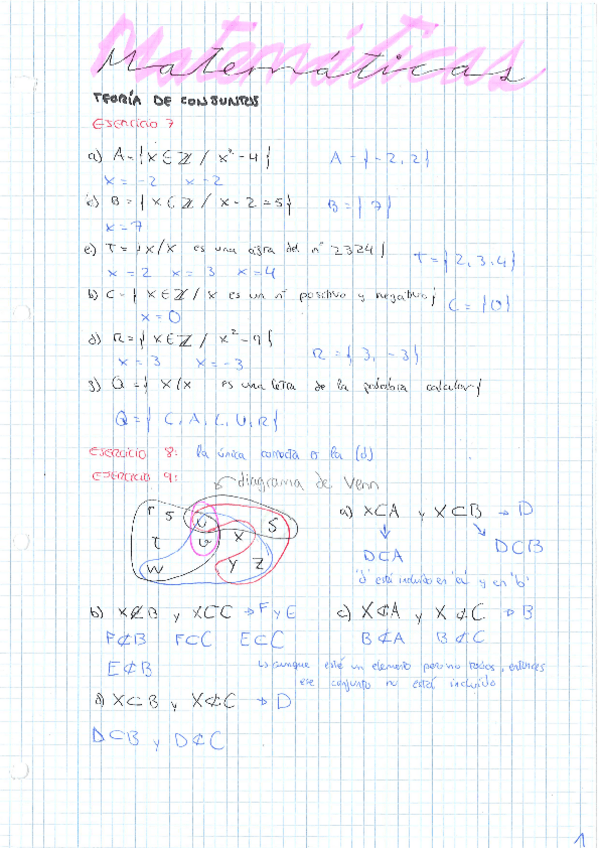 Matemáticas
TEORÍA DE CONJUNTOS
EJERCICIO 7
a) A={x∈ℤ / x²-4} A={-2,2}
x=-2 x=2
c) B={x∈ℤ / x-2=5} B={7}
x=7
e) T={x/x es una cifra del nº 2324} T={2,3,4}
x=2 x=3 x=4
b) C={x∈ℤ / x es un nº positivo y negativo} C={0}
x=0
d) R={x∈ℤ / x²-9} R={3,-3}
x=3 x=-3
g) Q={x/x es una letra de la palabra calcular}
Q={C,A,L,U,R}
EJERCICIO 8: la única correcta es la (d)
EJERCICIO 9: diagrama de Venn
r s u S
t v x
w y z
a) X⊂A y X⊂B → D
D⊂A D⊂B
"d" está incluido en "a" y en "b"
b) X⊄B y X⊂C → F y E c) X⊄A y X⊄C → B
F⊄B F⊂C E⊂C B⊄A B⊄C
E⊄B ↳ aunque esté un elemento pero no todos, entonces
ese conjunto no está incluido
d) X⊂B y X⊄C → D
D⊂B y D⊄C
1